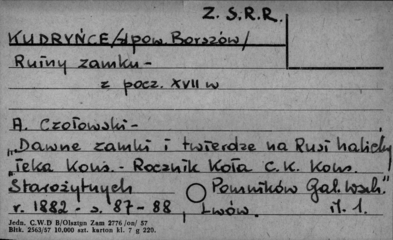 Z. S. R. R.
KUDRYŃCE /d pow. Borszów/
Ruiny zamku -
z pocz. XVII w
A. Czołowski -
"Dawne zamki i twierdze na Rusi halickiej
"Teka Kons. - Rocznik Koła C.K. Kons.
Starożytnych Pomników Gal. Wsch."
r. 1882 - s. 87-88 Lwów. il. 1.
Jedn. C.W.D B/Olsztyn Zam 2776/on/ 57
Bltk. 2563/57 10,000 szt. karton kl. 7 g 220.